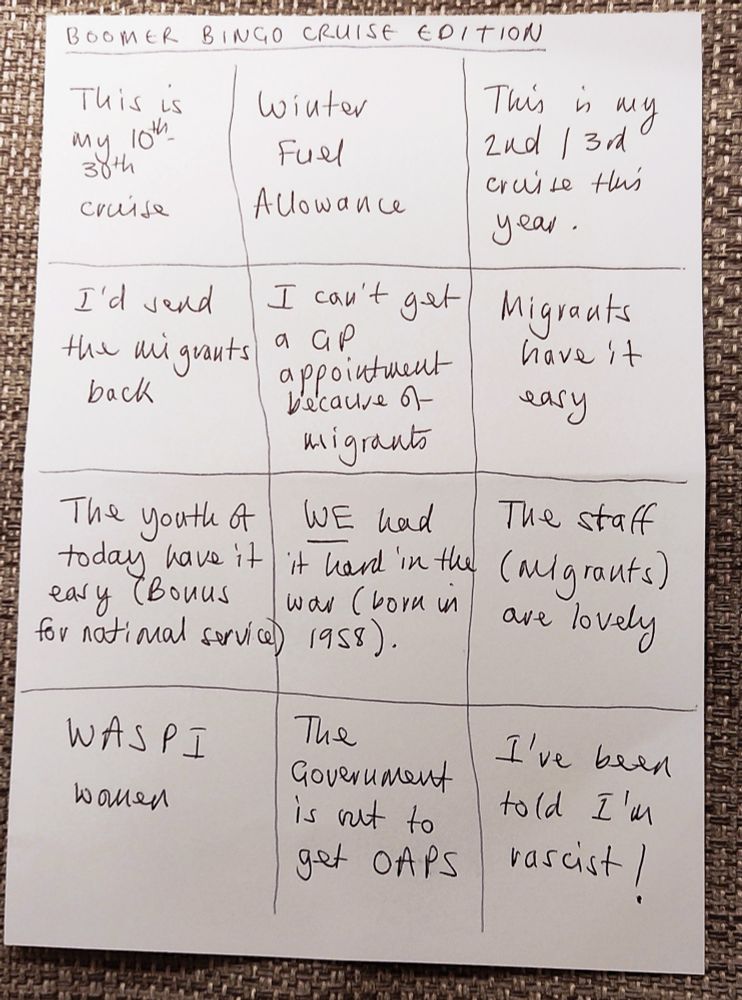 BOOMER BINGO CRUISE EDITION
This is
my 10th-
30th
cruise
Winter
Fuel
Allowance
This is my
2nd / 3rd
cruise this
year.
I'd send
the migrants
back
I can't get
a GP
appointment
because of
migrants
Migrants
have it
easy
The youth of
today have it
easy (Bonus
for national service)
WE had
it hard in the
war (born in
1958).
The staff
(migrants)
are lovely
WASPI
women
The
Government
is out to
get OAPS
I've been
told I'm
rascist!